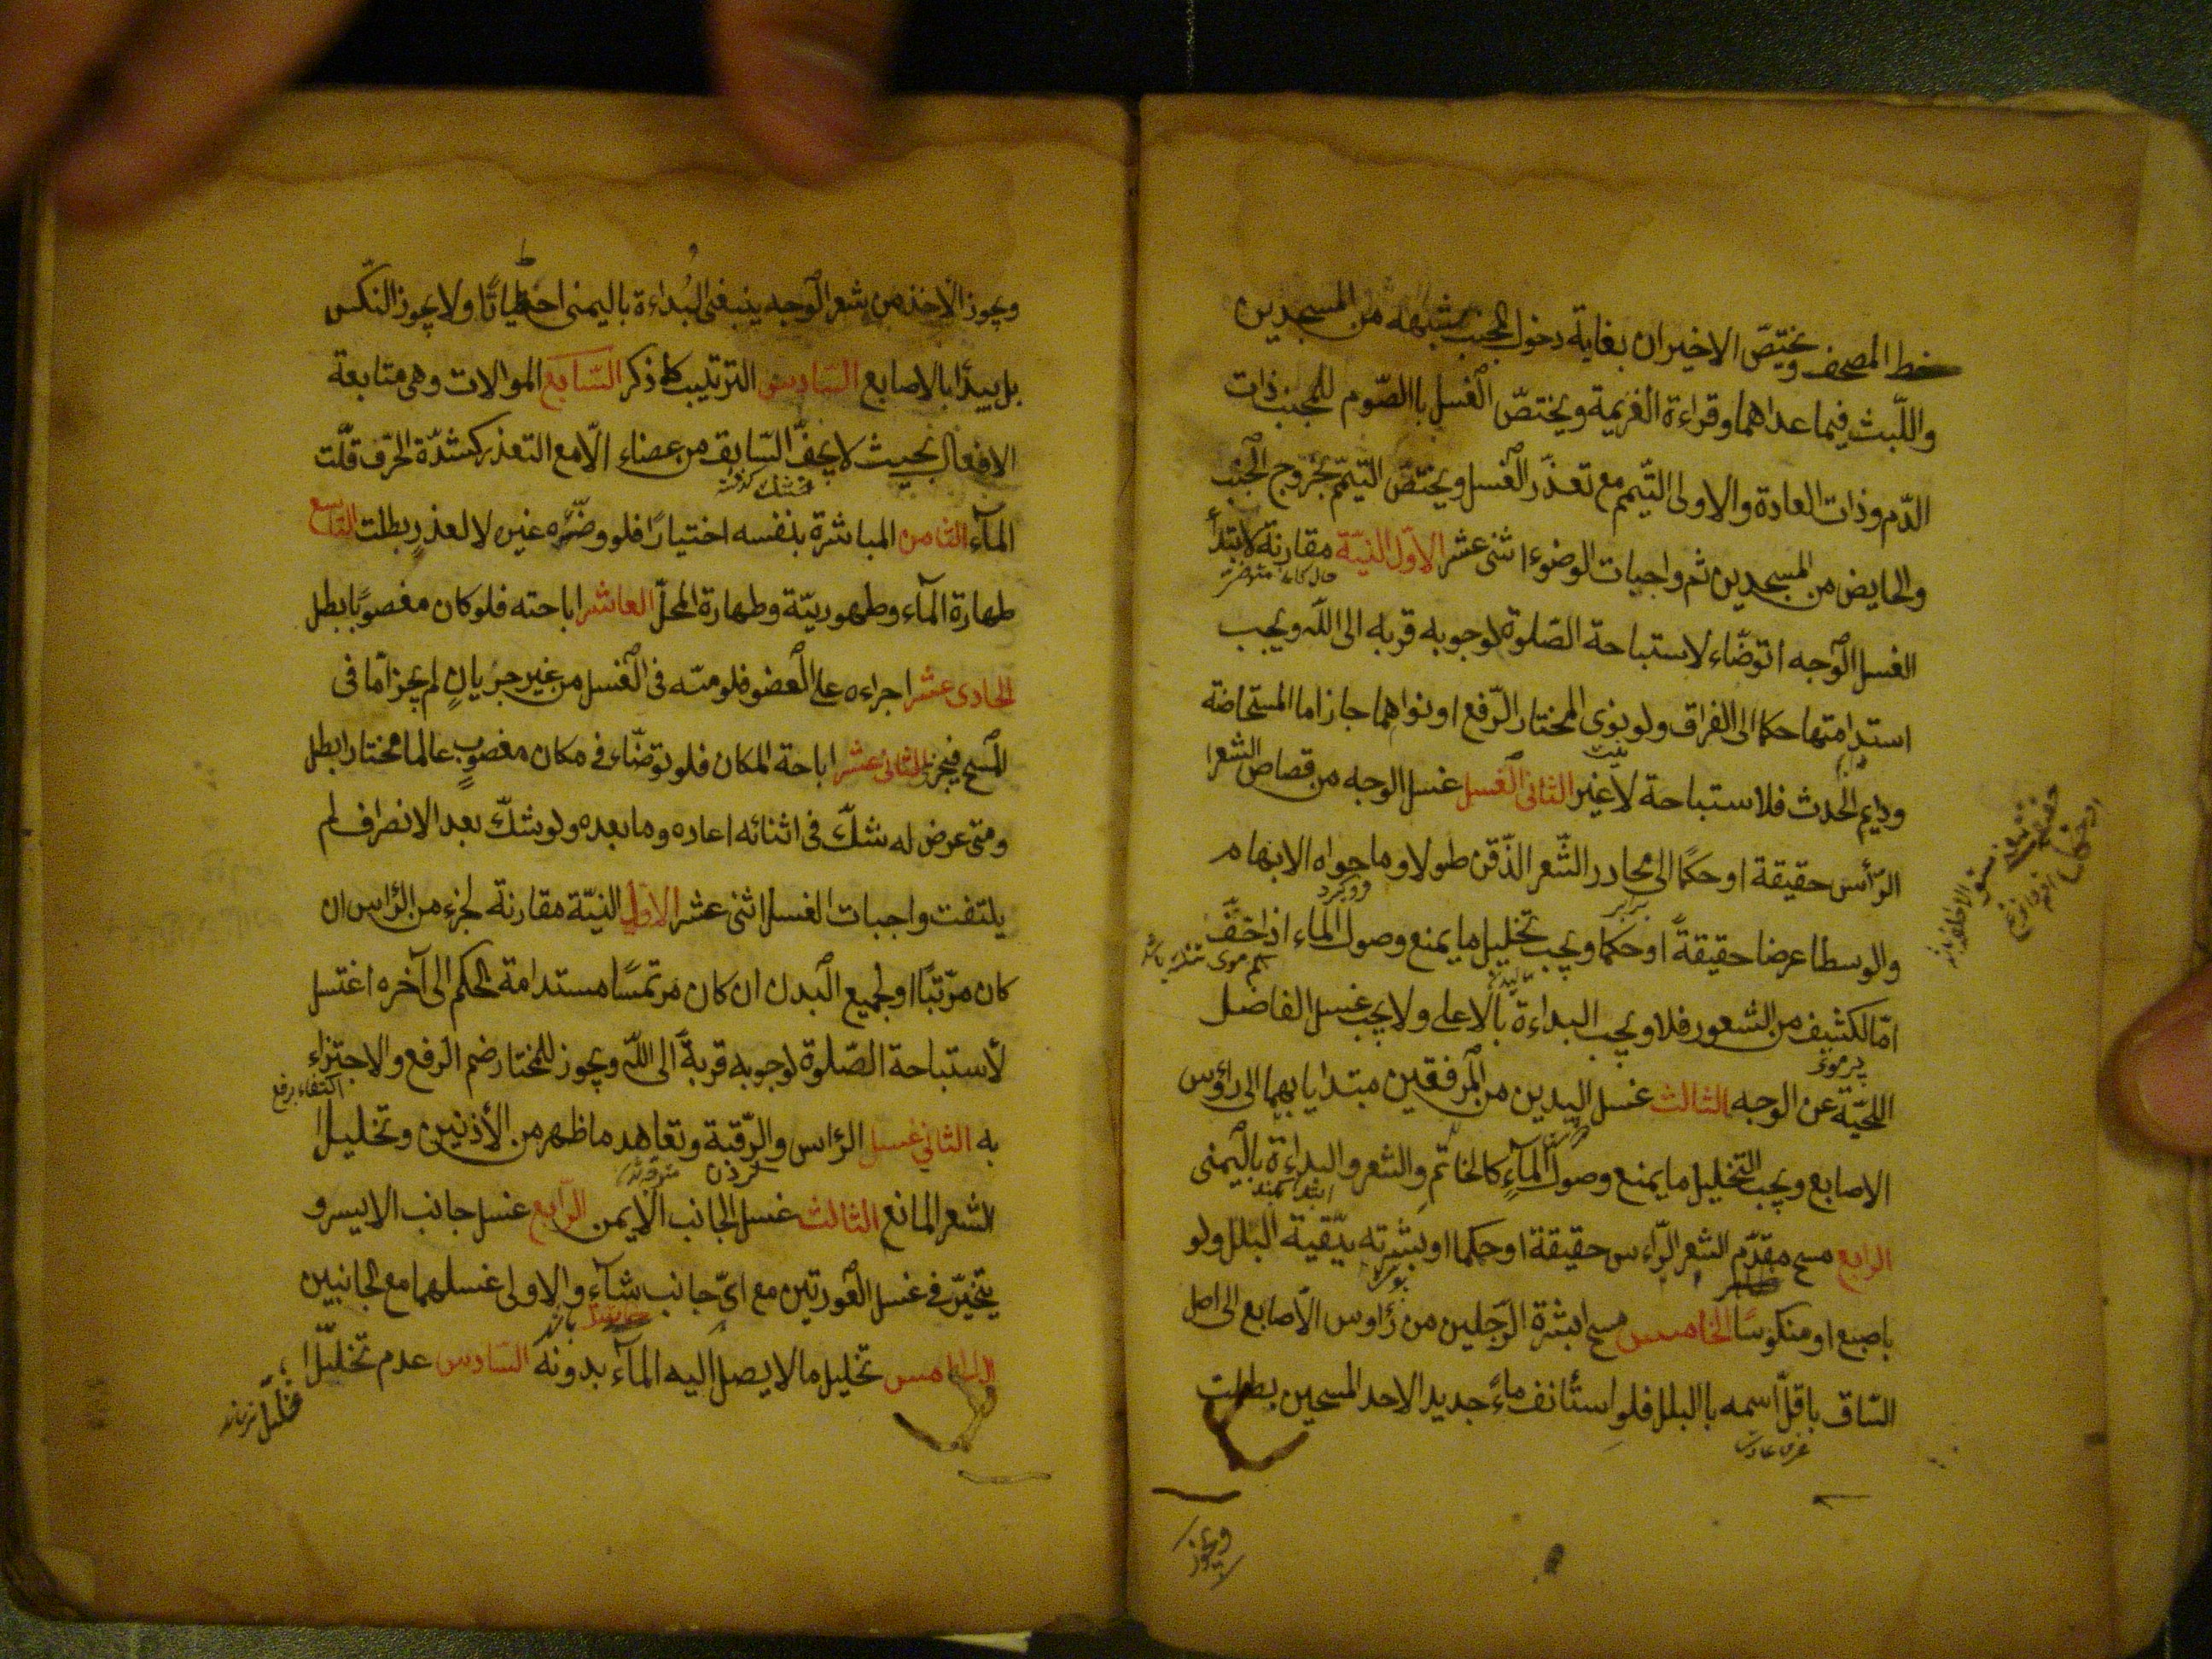 خط المصحف ويختصّ الاخيران بغاية دخول الجنب بشبهه من المسجدين
واللّبث فيما عداهما وقراءة الغريمة ويختصّ الغسل باالصّوم للجنب ذات
الدّم وذات العادة والاولى التّيمم مع تعذّر الغسل ويختصّ التيمّم بخروج الجنب
والحايض من المسجدين ثم واجبات الوضوء اثنى عشر الاوّل النيّة مقارنة لابتدأ
الغسل الوجه اتوضّاء لاستباحة الصّلوة لوجوبه قربه الى اللّه ويجب
استدامتها حكما الى الفراق ولو نوى المختار الرّفع او نواهما جاز اما المستحاضة
ودايم الحدث فلاستباحة لاغير الثانى الغسل غسل الوجه من قصاص الشعر ا
الرّأس حقيقة او حكمًا الى محادر الشّعر الذّقن طولا وما حواه الابهام
والوسطا عرضا حقيقةً او حكما ويجب تخليل ما يمنع وصول الماء اذا خفّ
امّا لكثيف من الشعور فلا ويجب البداءة بالاعلى ولا يجب غسل الفاضل
اللحيّة عن الوجه الثالث غسل اليدين من المرفقين مبتدايا بهما الى راؤس
الاصابع ويجب التخليل ما يمنع وصول المآء كالخاتم والشعر والبداءة باليمنى
الرابع مسح مقدّم الشعر الرّاءس حقيقة او حكما او بشرته ببقيّة البلل ولو
باصبع او منكوسًا الخامس مسح ابشرة الرّجلين من رؤاوس الاصابع الى اصل
السّاق باقلّ اسمه باالبلل فلو استأنف ماءً جديد الاحد المسحين بطلت
ويجوز
ويجوز الاخذ من شعر الوجه ينبغى البُداءة باليمنى احتياتًا ولا يجوز النكس
بل يبدًا بالاصابع السّادس الترتيب كما ذكر السّابع الموالات وهى متابعة
الافعال بحيث لا يجفّ السّابق من عضاء الّا مع التعذر كشدّة الحّرف قلّت
المآء الثامن المباشرة بنفسه اختيارًا فلو وضّره غيره لا لعذرٍ بطلت التاسع
طهارة المآء وطهوريّة وطهارة المحلّ العاشر اباحته فلو كان مغصوبًا بطل
الحادى عشر اجراءه على العضو فلو متّه فى الغسل من غير جريانٍ لم يجز امّا فى
المسح فيجز الثانى عشر اباحة المكان فلو توضّاء فى مكان مغصوبٍ عالما مختارا بطل
ومتى عرض له شكّ فى اثنائه اعاده وما بعده ولو شكّ بعد الانصراف لم
يلتفت واجبات الغسل اثنى عشر الاول النيّة مقارنة لجزء من الرّاس ان
كان مرّتبًا او لجميع البدن ان كان مرتمسًا مستدامة الحكم الى آخره اغتسل
لأستباحة الصّلوة لوجوبه قربةً الى اللّه ويجوز للمختار ضم الرفع والاجتزاء
اكتفاء برفع
به الثانى غسل الرّاس والرّقبة وتعاهد ما ظهر من الأذنين وتخليل ا
الشعر المانع الثالث غسل الجانب الايمن الرّابع غسل جانب الايسر و
يتخيّر فى غسل العورتين مع اىّ جانب شآء والاولى غسلهما مع الجانبين
الخامس تخليل ما لا يصل اليه المآء بدونه السّادس عدم تخليّل ا